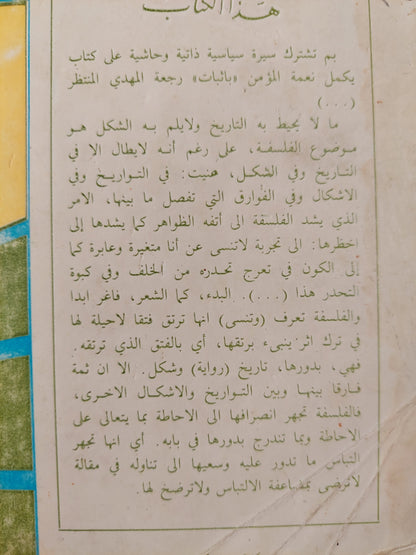 هذا الكتاب
بم تشترك سيرة سياسية ذاتية وحاشية على كتاب
يكمل نعمة المؤمن «باثبات» رجعة المهدي المنتظر
(...)
ما لا يحيط به التاريخ ولايلم به الشكل هو
موضوع الفلسفة، على رغم أنه لايطال الا في
التاريخ وفي الشكل، عنيت: في التواريخ وفي
الاشكال وفي الفوارق التي تفصل ما بينها، الامر
الذي يشد الفلسفة الى أتفه الظواهر كما يشدها إلى
اخطرها: الى تجربة لاتنسى عن أنا متغيرة وعابرة كما
إلى الكون في تعرج تحدره من الخلف وفي كبوة
التحدر هذا (...). البدء، كما الشعر، فاغر ابدا
والفلسفة تعرف (وتنسى) انها ترتق فتقا لاحيلة لها
في ترك اثر ينبىء برتقها، أي بالفتق الذي ترتقه.
فهي، بدورها، تاريخ (رواية) وشكل. الا ان ثمة
فارقا بينها وبين التواريخ والاشكال الاخرى،
فالفلسفة تجهر انصرافها الى الاحاطة بما يتعالى على
الاحاطة وبما تندرج بدورها في بابه. أي انها تجهر
التباس ما تدور عليه وسعيها الى تناوله في مقالة
لاترضى بمضاعفة الالتباس ولاترضخ لها.